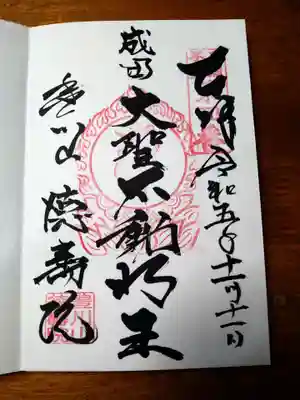 奉拝 令和五年十一月十一日
成田
大聖不動明王
徳寿院